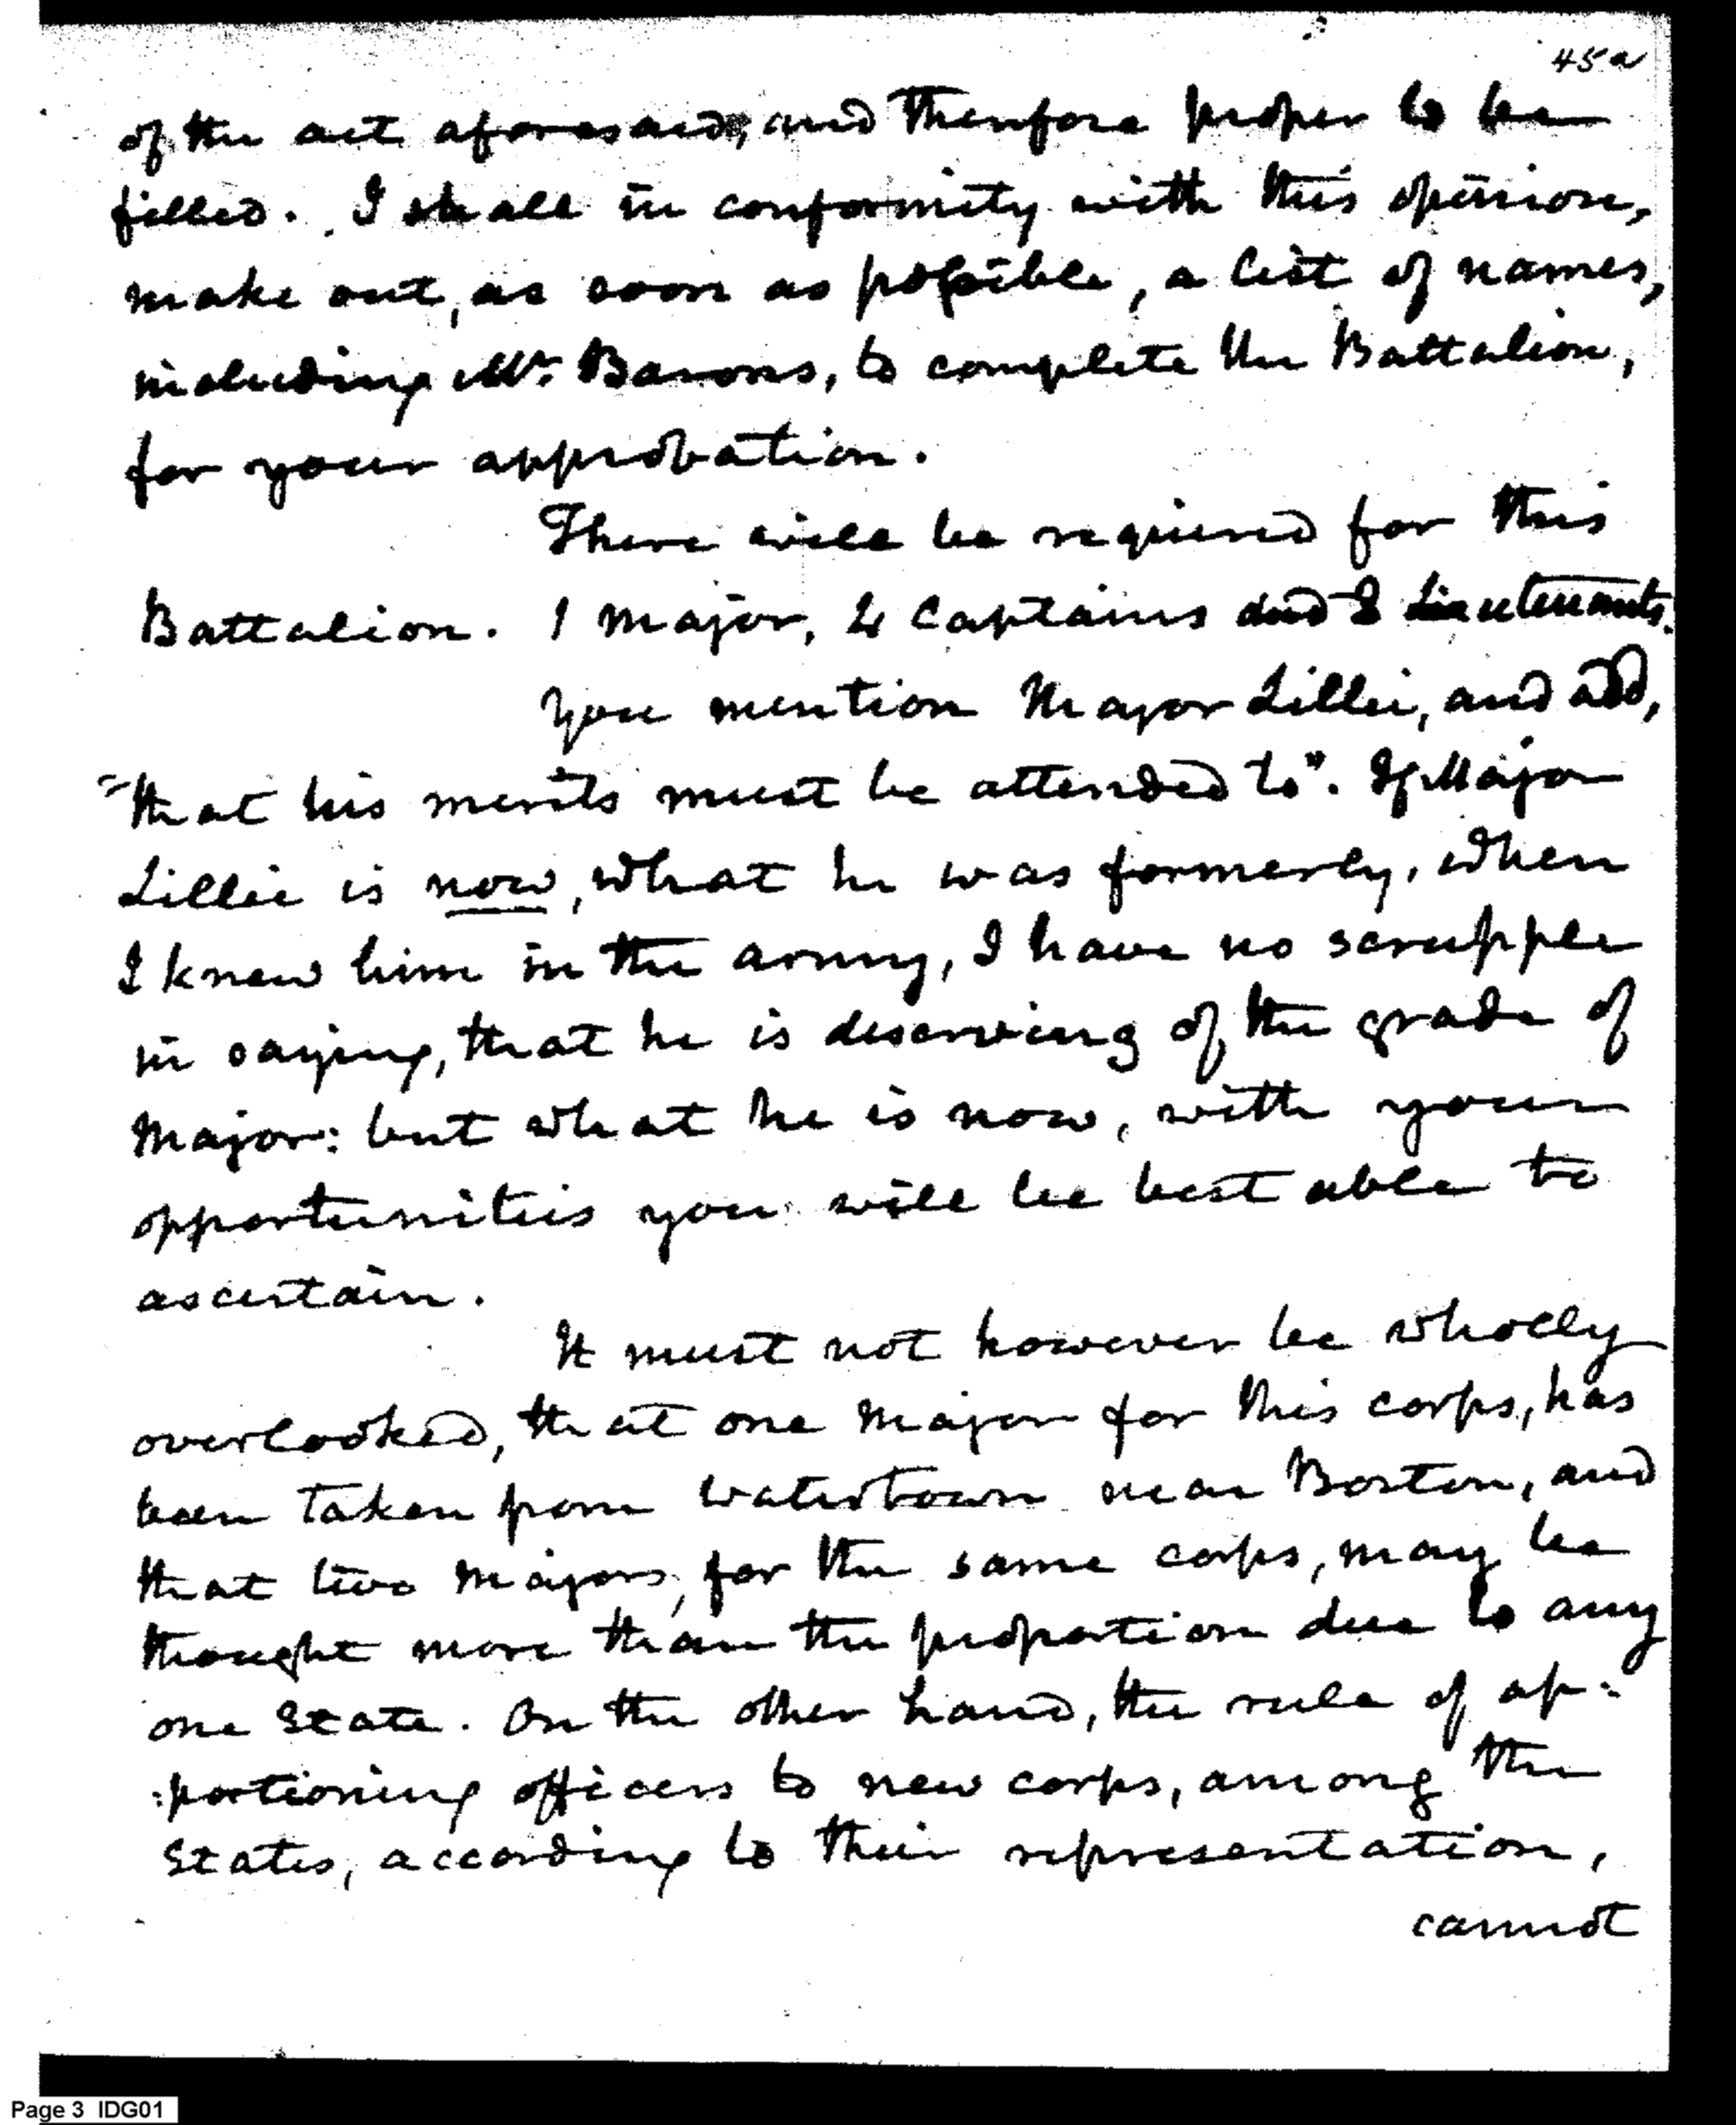 45a
of the act aforesaid, and Therefore proper to be
filled. I shall in conformity with this opinion,
make out, as soon as possible, a list of names,
including Mr. Barons, to complete the Battalion,
for your approbation.
There will be required for this
Battalion. 1 Major, 4 Captains and 8 Lieutenants.
You mention Major Lillie, and add,
"that his merits must be attended to". If Major
Lillie is now, what he was formerly, when
I knew him in the army, I have no scrupple
in saying, that he is deserving of the grade of
Major: but what he is now, with your
opportunities you will be best able to
ascertain.
It must not however be wholly
overlooked, that one Major for this corps, has
been taken from Watertown near Boston, and
that two Majors, for the same corps, may be
thought more than the proportion due to any
one State. On the other hand, the rule of ap:
:portioning officers to new corps, among the
States, according to their representation,
cannot
Page 3 IDG01